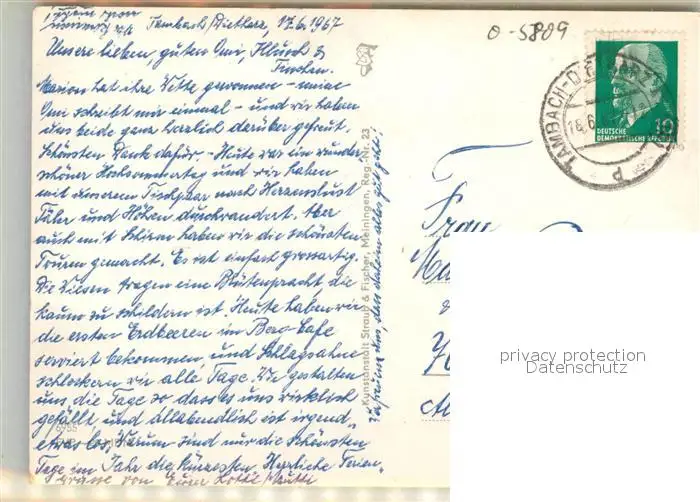 Tambach/Dietharz, 17.6.1967
Unsere lieben, guten Omi, &
Tinchen.
Marion hat ihre Wette gewonnen – meine
Omi schreibt mir einmal – und wir haben
uns beide ganz herzlich darüber gefreut.
Schönsten Dank dafür. – Heute war ein wunder-
schöner Hochsommertag und wir haben
mit unserem Tischpaar nach Herzenslust
Täler und Höhen durchwandert. Aber
auch mit Schirm haben wir die schönsten
Touren gemacht. Es ist einfach grossartig.
Die Wiesen tragen eine Blütenpracht die
kaum zu schildern ist. Heute haben wir
die ersten Erdbeeren im Berg-Cafe
serviert bekommen und Schlagsahne
schleckern wir alle Tage. Wir gestalten
uns die Tage so dass es uns wirklich
gefällt und allabendlich ist irgend-
etwas los. Warum sind nur die schönsten
Tage im Jahr die kürzesten. Herrliche Ferien-
grüsse von Eurer Lotte/Mutti
Kunstanstalt Straub & Fischer, Meiningen, Reg.-Nr. 23
0-5809
TAMBACH-DIETHARZ
18.6.
P
DEUTSCHE
DEMOKRATISCHE REPUBLIK
10
Frau
privacy protection
Datenschutz